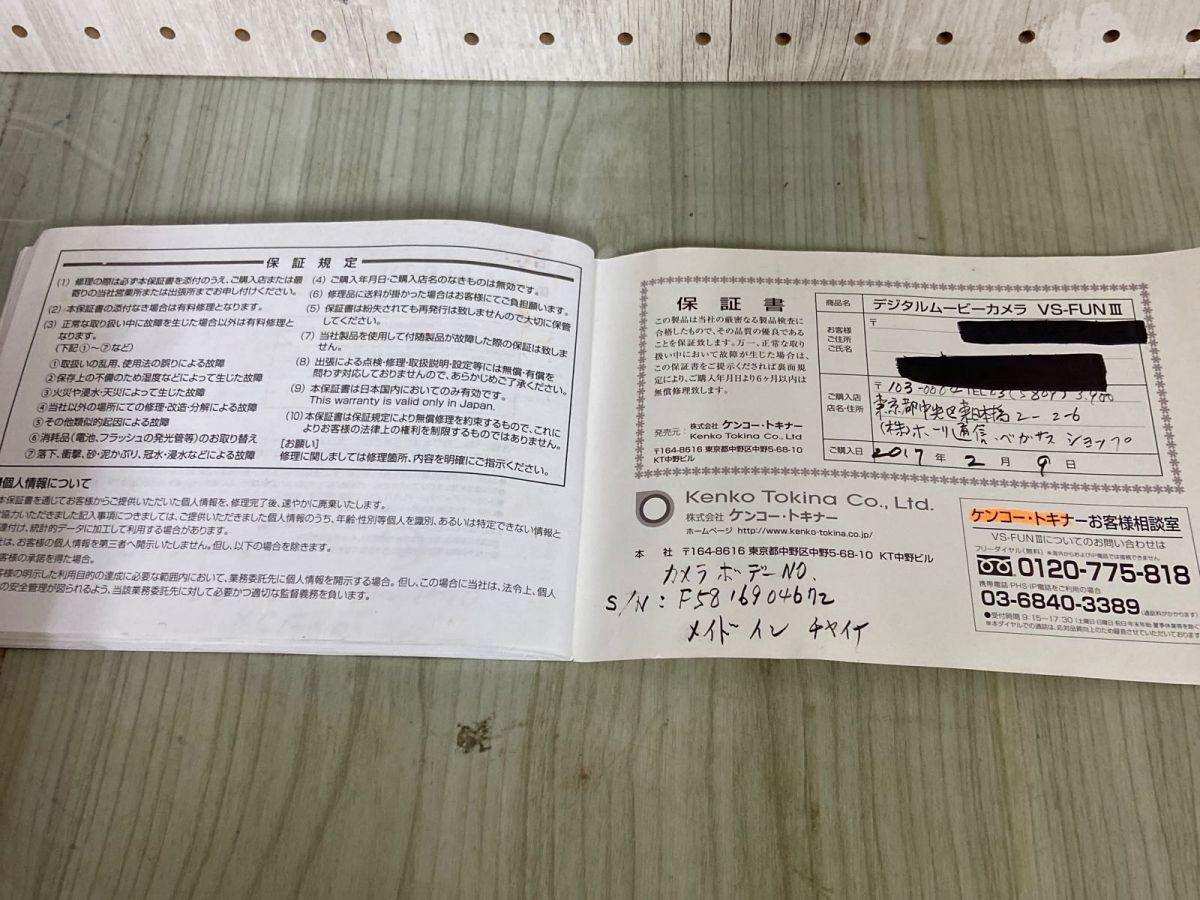 保証規定
(1) 修理の際は必ず本保証書を添付のうえ、ご購入店または最
寄りの当社営業所または出張所までお申し付けください。
(2) 本保証書の添付なき場合は有料修理となります。
(3) 正常な取り扱い中に故障を生じた場合以外は有料修理と
なります。
(下記①～⑦など)
①取扱いの乱用、使用法の誤りによる故障
②保存上の不備のため湿度などによって生じた故障
③火災や浸水・天災によって生じた故障
④当社以外の場所にての修理・改造・分解による故障
⑤その他類似的起因による故障
⑥消耗品(電池、フラッシュの発光管等)のお取り替え
⑦落下、衝撃、砂・泥かぶり、冠水・浸水などによる故障
(4) ご購入年月日・ご購入店名のなきものは無効です。
(6) 修理品に送料が掛かった場合はお客様にてご負担願います。
(5) 保証書は紛失されても再発行は致しませんので大切に保管
してください。
(7) 当社製品を使用して付随製品が故障した際の保証は致しま
せん。
(8) 出張による点検・修理・取扱説明・設定等には無償・有償を
問わず対応しておりませんので、あらかじめご了承ください。
(9) 本保証書は日本国内においてのみ有効です。
This warranty is valid only in Japan.
(10) 本保証書は保証規定により無償修理を約束するもので、これに
よりお客様の法律上の権利を制限するものではありません。
[お願い]
修理に関しましては修理箇所、内容を明確にご指示ください。
個人情報について
本保証書を通じてお客様からご提供いただいた個人情報を、修理完了後、速やかに廃棄いたします。
協力いただきました記入事項につきましては、ご提供いただきました個人情報のうち、年齢・性別等個人を識別、あるいは特定できない情報と
付け、統計的データに加工して利用する場合があります。
は、お客様の個人情報を第三者へ開示いたしません。但し、以下の場合を除きます。
客様の承諾を得た場合。
客様の明示した利用目的の達成に必要な範囲内において、業務委託先に個人情報を開示する場合。但し、この場合に当社は、法令上、個人
の安全管理が図られるよう、当該業務委託先に対して必要かつ適切な監督義務を負います。
保証書
この製品は当社の厳密なる製品検査に
合格したもので、その品質の優良である
ことを保証致します。万一、正常な取り
扱い中において故障が生じた場合は、
この保証書をご提示くだされば裏面規
定により、ご購入年月日より6ヶ月以内は
無償修理致します。
発売元: 株式会社 ケンコー・トキナー
Kenko Tokina Co., Ltd
〒164-8616 東京都中野区中野5-68-10
KT中野ビル
商品名 デジタルムービーカメラ VS-FUNⅢ
お客様
ご住所
ご氏名
〒
ご購入店
店名・住所
〒103-0002 TEL
東京都中央区東日本橋2-2-6
(株)ホーリ通信 ペガサスショップ
ご購入日 2017 年 2 月 9 日
Kenko Tokina Co., Ltd.
株式会社 ケンコー・トキナー
ホームページ http://www.kenko-tokina.co.jp/
本 社 〒164-8616 東京都中野区中野5-68-10 KT中野ビル
カメラボデーNO.
S/N: F5816904672
メイドイン チャイナ
ケンコー・トキナーお客様相談室
VS-FUNⅢについてのお問い合わせは
フリーダイヤル(無料) ※海外からおよびIP電話では接続できません
0120-775-818
携帯電話・PHS・IP電話をご利用の場合
03-6840-3389 (通話料がかかります)
●受付時間 9:15～17:30 (土曜日・日曜日・祝日・年末年始・夏季休業等を除く)
※本ダイヤルでの通話は、応対品質向上のため録音させていただいております